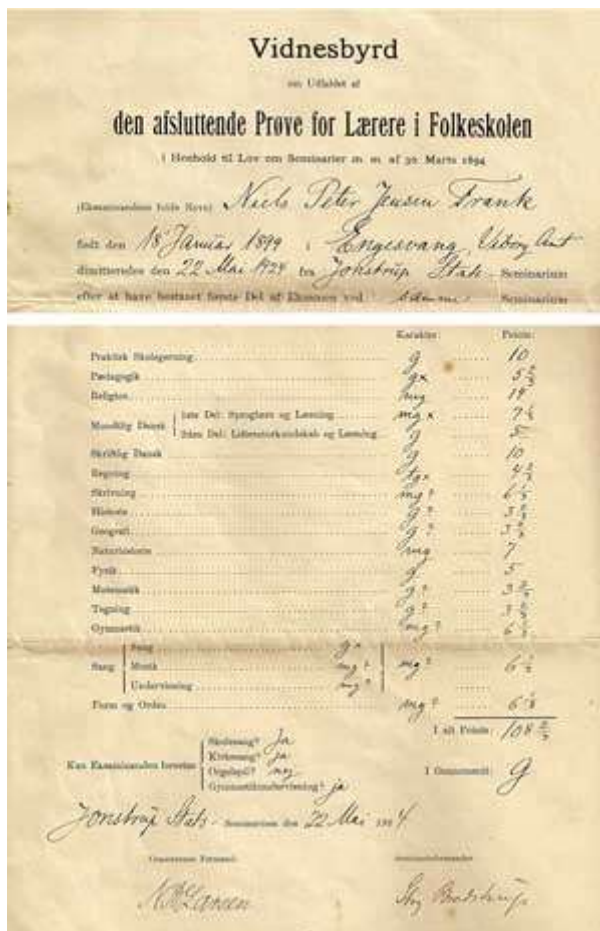 Vidnesbyrd
om Udfaldet af
den afsluttende Prøve for Lærere i Folkeskolen
i Henhold til Lov om Seminarier m. m. af 30. Marts 1894
(Eksaminandens fulde Navn) Niels Peter Jensen Frank
født den 18 Januar 1899 i Engesvang, Viborg Amt
dimitteredes den 22 Mai 1924 fra Jonstrup Stats- Seminarium
efter at have bestaaet første Del af Eksamen ved samme Seminarium
Karakter: Points:
Praktisk Skolegerning g 10
Pædagogik gx 5 2/3
Religion mg 14
Mundtlig Dansk 1ste Del: Sproglære og Læsning mgx
2den Del: Litteraturkundskab og Læsning g 5
Skriftlig Dansk g 10
Regning tgx
Skrivning mg?
Historie g?
Geografi g?
Naturhistorie mg 7
Fysik g 5
Matematik g?
Tegning g?
Gymnastik mg?
Sang gx
Sang Musik mg? mg?
Undervisning mg?
Form og Orden mg?
I alt Points: 108 2/3
Kan Eksaminanden bestride Skolesang? Ja
Kirkesang? ja
Orgelspil? nej
Gymnastikundervisning? ja
I Gennemsnit: g
Jonstrup Stats- Seminarium den 22 Mai 1924